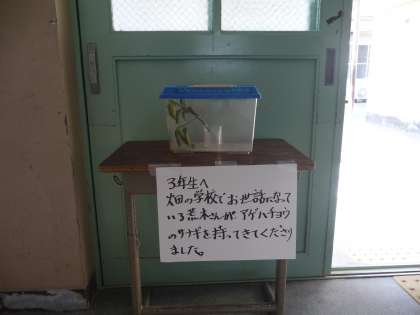 3年生へ
畑の学校でお世話になって
いる荒木さんが アゲハチョウ
のサナギを持ってきてくださり
ました。